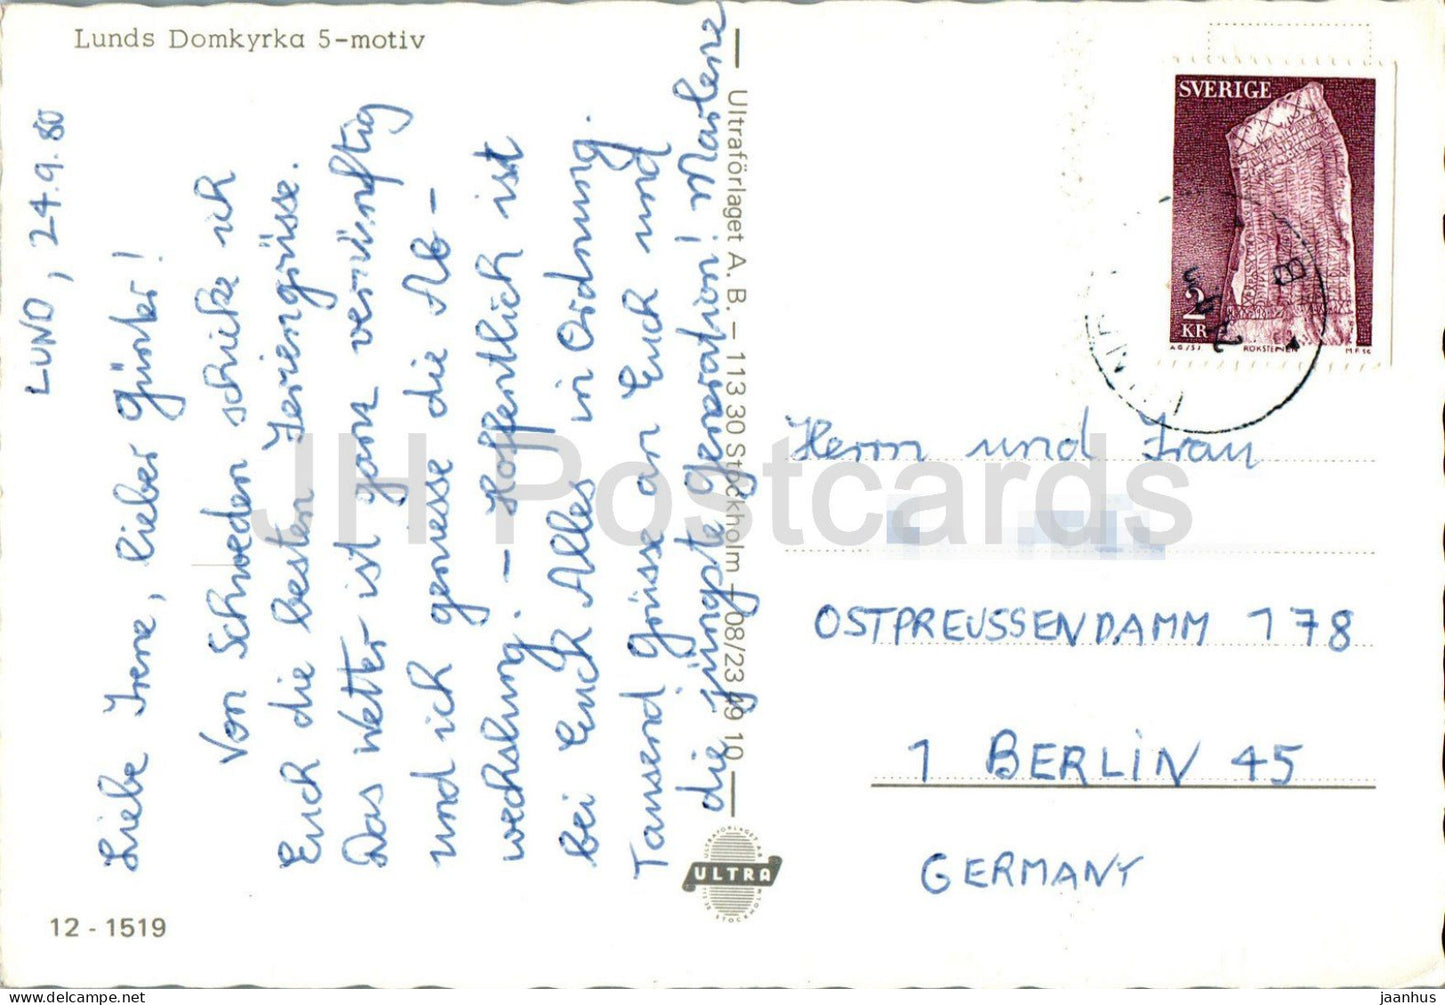 Lunds Domkyrka 5-motiv
LUND, 24.9.80
Liebe Irene, lieber Günter!
Von Schweden schicke ich
Euch die besten Feriengrüsse.
Das Wetter ist ganz vernünftig
und ich geniesse die Ab-
wechslung. – Hoffentlich ist
bei Euch Alles in Ordnung.
Tausend Grüsse an Euch und
die jüngste Generation! Marlene
12 - 1519
Ultraförlaget A. B. – 113 30 Stockholm – 08/23 49 10
ULTRAFÖRLAGET AB
ULTRA
STOCKHOLM
SVERIGE
2
KR
RÖKSTENEN
Herrn und Frau
OSTPREUSSENDAMM 178
1 BERLIN 45
GERMANY
JH Postcards
jaanhus